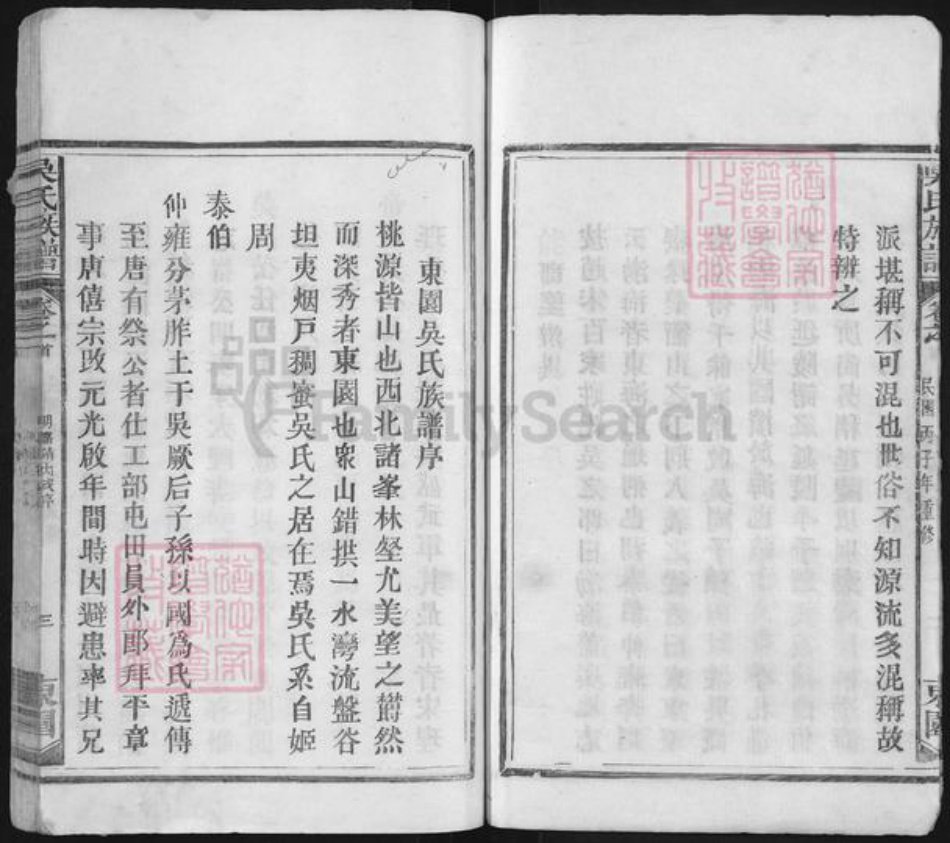 民國丙子年重修
東園
派堪稱不可混也世俗不知源流多混稱故
特辨之
東園吳氏族譜序
桃源皆山也西北諸峯林壑尤美望之欝然
而深秀者東園也衆山錯拱一水灣流盤谷
坦夷烟戶稠蜜吳氏之居在焉吳氏系自姬
周
泰伯
仲雍分茅胙土于吳厥后子孫以國爲氏遞傳
至唐有祭公者仕工部屯田員外郎拜平章
事唐僖宗改元光啟年間時因避患率其兄
吳氏族譜
卷之首
三
東園
FamilySearch